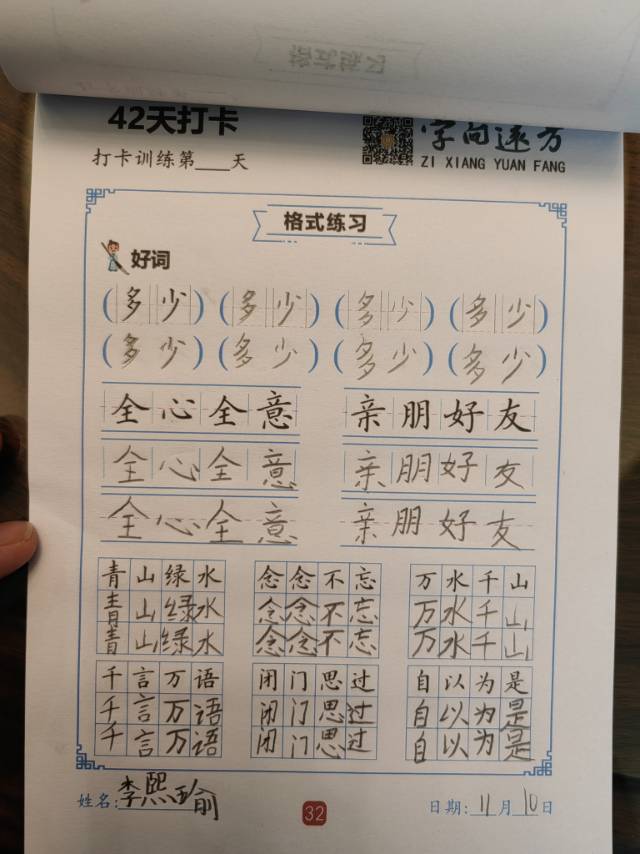 格式练习
42天打卡
字向远方
打卡训练第____天
ZI XIANG YUAN FANG
格式练习
好词
(多少) (多少) (多少) (多少)
(多少) (多少) (多少) (多少)
全心全意 亲朋好友
全心全意 亲朋好友
全心全意 亲朋好友
青山绿水 念念不忘 万水千山
青山绿水 念念不忘 万水千山
青山绿水 念念不忘 万水千山
千言万语 闭门思过 自以为是
千言万语 闭门思过 自以为是
千言万语 闭门思过 自以为是
姓名:李熙瑜 32 日期:11月10日